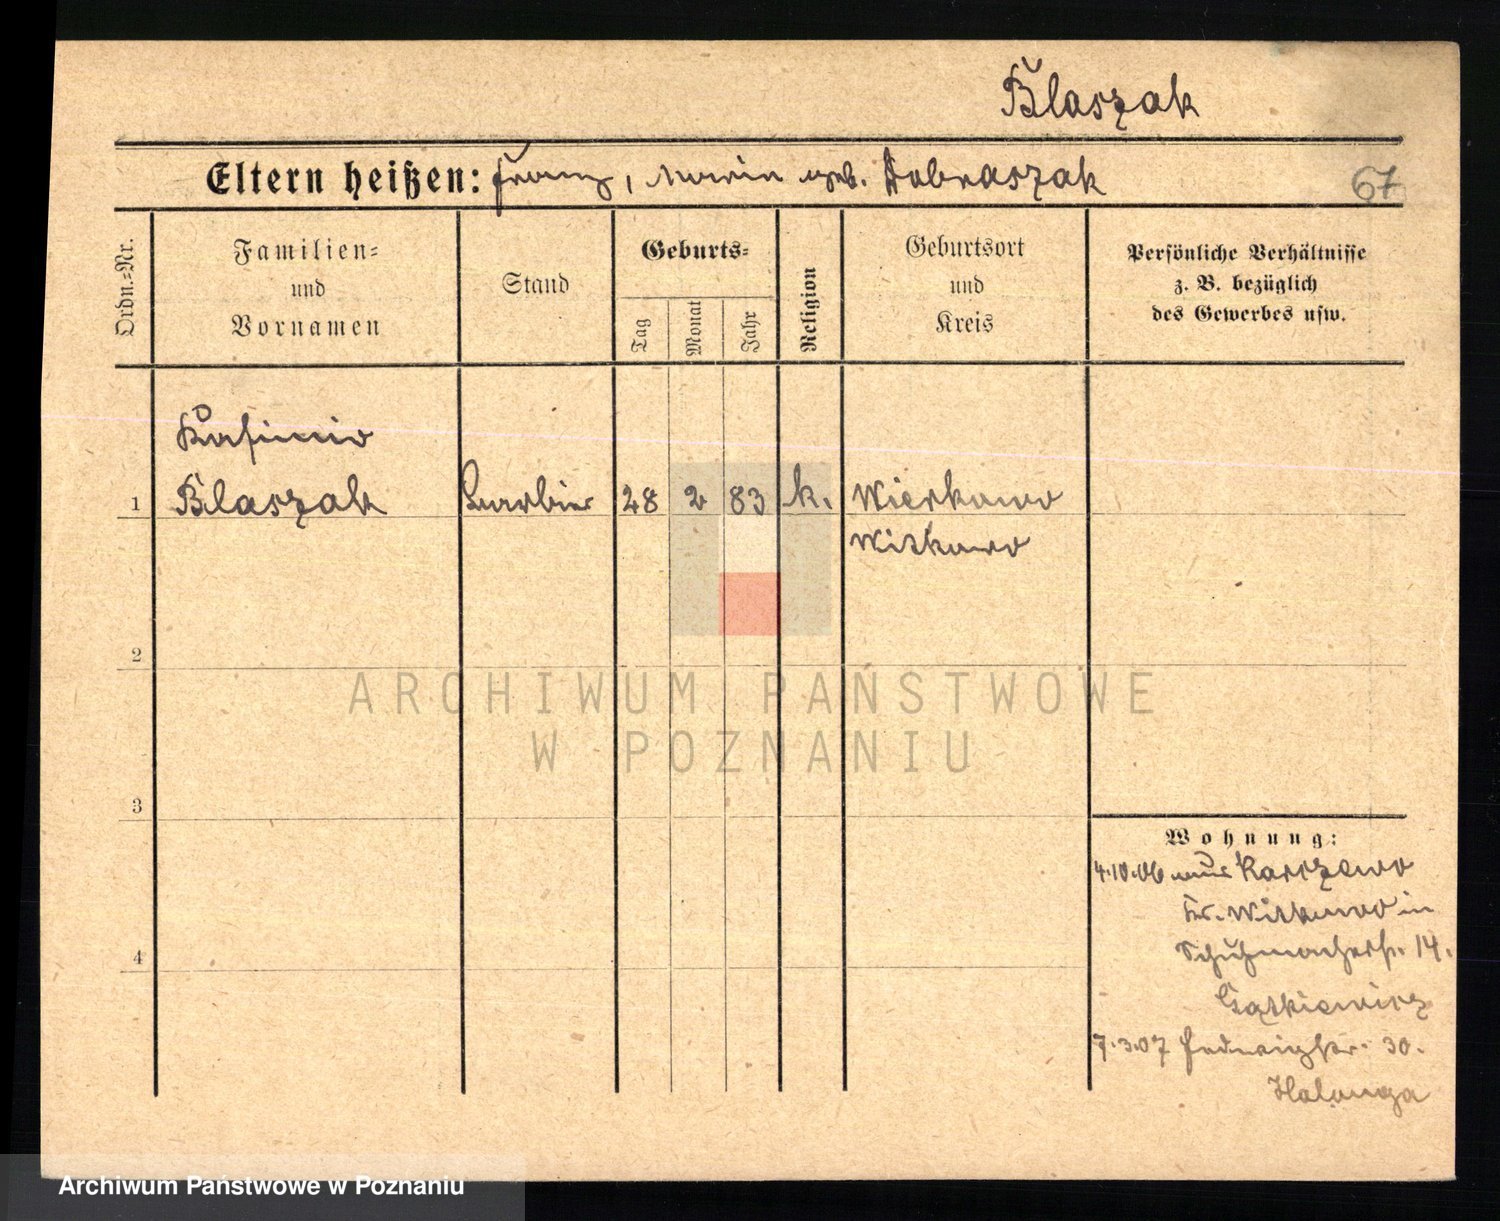 Blaszak
Eltern heißen: Franz, Maria geb. Dobraszak
67
Ordn.=Nr.
Familien=
und
Vornamen
Stand
Geburts=
Tag
Monat
Jahr
Religion
Geburtsort
und
Kreis
Persönliche Verhältnisse
z. B. bezüglich
des Gewerbes usw.
Kasimir
1 Blaszak Barbier 28 2 83 k. Wierkowo
Witkowo
2
ARCHIWUM PAŃSTWOWE
W POZNANIU
3
Wohnung:
4.10.06 aus Karczewo
Kr. Witkowo in
Schuhmacherstr. 14.
4
7.3.07 Hedwigstr. 30.
Halanga
Archiwum Państwowe w Poznaniu